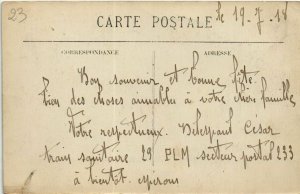 23
le 19-7-18
CARTE POSTALE
CORRESPONDANCE
ADRESSE
Bon souvenir et bonne fête
bien des choses aimables à votre chère famille
Votre respectueux. Delespaul César
train sanitaire 29 PLM secteur postal 233
à bientôt espérons